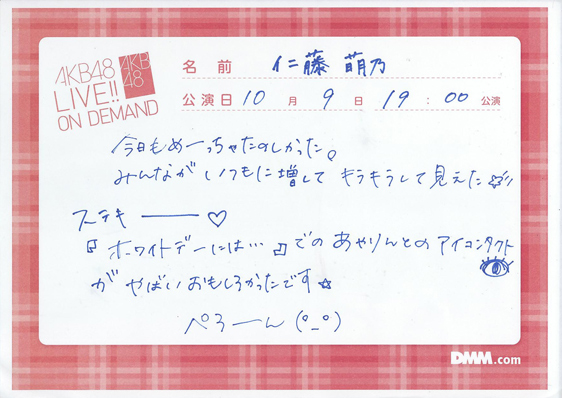 AKB48
LIVE!!
ON DEMAND
AKB
48
名前 仁藤 萌乃
公演日 10 月 9 日 19 : 00 公演
今日もめーっちゃたのしかった。
みんながいつもに増してキラキラして見えた☆彡
ステキ――♡
『ホワイトデーには…』でのあやりんとのアイコンタクト
がやばいおもしろかったです☆
ぺろーん(°_°)
DMM.com